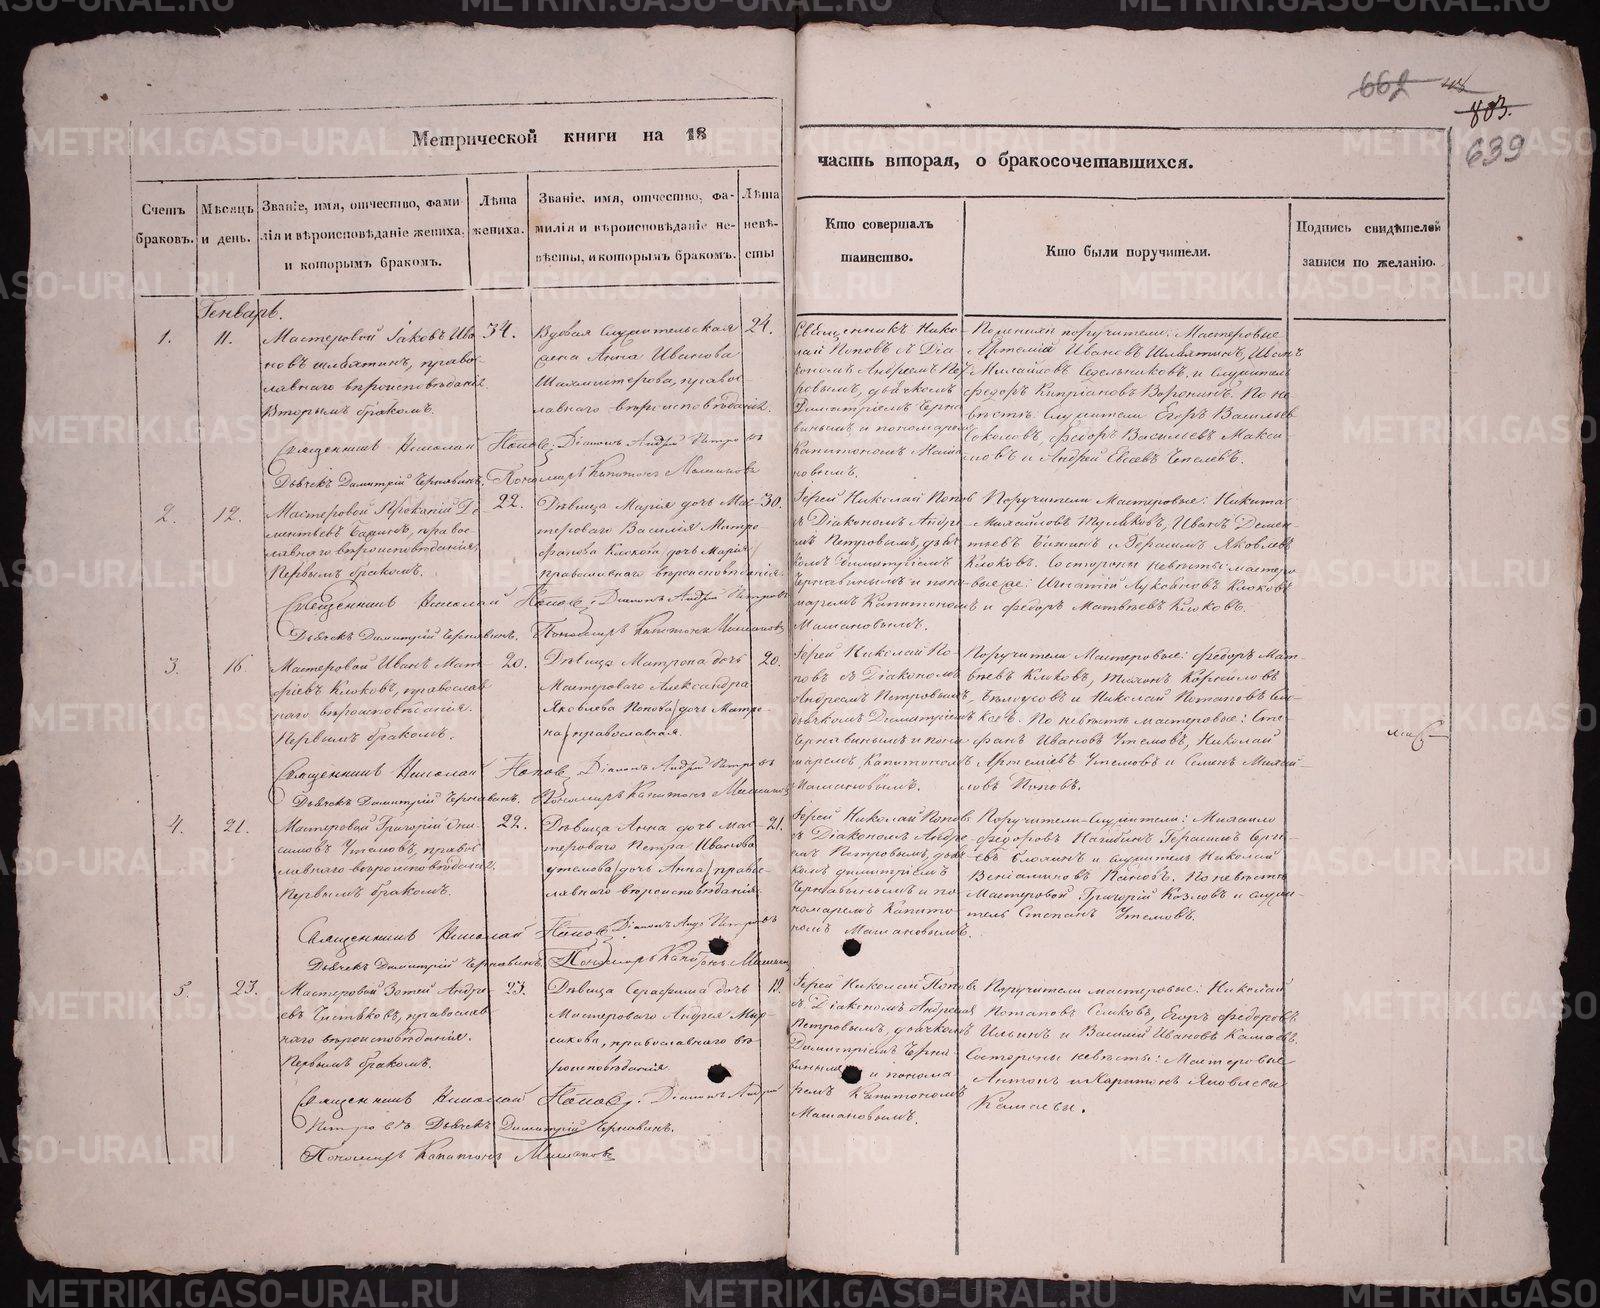 Метрической книги на 18
часть вторая, о бракосочетавшихся.
662
803.
639
Счетъ браковъ.
Мѣсяцъ и день.
Званіе, имя, отчество, фами-
лія и вѣроисповѣданіе жениха.
и которымъ бракомъ.
Лѣта
жениха.
Званіе, имя, отчество, фа-
милія и вѣроисповѣданіе не-
вѣсты, и которымъ бракомъ.
Лѣта
невѣ-
сты
Кто совершалъ
таинство.
Кто были поручители.
Подпись свидѣтелей
записи по желанію.
Генварь.
1.
11.
Мастеровой Іаковъ Ива
новъ православнаго вѣроисповѣданія
Вторымъ бракомъ.
34.
Вдовая Служительская
жена Анна Иванова
правос-
лавнаго вѣроисповѣданія.
24.
Священникъ Нико-
лай Поповъ съ Діа
кономъ Андреемъ Пет
ровымъ, дьячкомъ
Димитріемъ Черна
винымъ и пономаремъ
Капитономъ Маша
новымъ.
поручители: Мастеровые
Артемій Ивановъ Иванъ
Михайловъ и Служитель
Федоръ Кипріановъ Воронинъ. По не
вѣстѣ: Служители Егоръ Васильевъ
Соколовъ, Федоръ Васильевъ Макси-
мовъ и Андрей Евсеевъ
Священникъ Николай Поповъ. Діаконъ Андрей Петровъ
Дьячекъ Димитрій Чернавинъ. Пономарь Капитонъ Машановъ
2.
12.
Мастеровой Де
ментьевъ правос-
лавнаго вѣроисповѣданія,
Первымъ бракомъ.
22.
Дѣвица Марія дочь Мас-
тероваго Василія Митро
фанова Клокова /дочь Марія/
православнаго вѣроисповѣданія.
30.
Іерей Николай Поповъ
съ Діакономъ Андре
емъ Петровымъ, дьяч
комъ Димитріемъ
Чернавинымъ и поно-
маремъ Капитономъ
Машановымъ.
Поручители Мастеровые: Никита
Михайловъ Иванъ Демен-
тьевъ и Герасимъ Яковлевъ
Клоковъ. Со стороны невѣсты: мастеро
вые же: Игнатій Клоковъ
и Федоръ Матвѣевъ Клоковъ.
Священникъ Николай Поповъ. Діаконъ Андрей Петровъ
Дьячекъ Димитрій Чернавинъ. Пономарь Капитонъ Машановъ
3.
16.
Мастеровой Иванъ Мат-
фіевъ Клоковъ, православ
наго вѣроисповѣданія.
Первымъ бракомъ.
20.
Дѣвица Матрона дочь
Мастероваго Александра
Яковлева Попова /дочь Матро-
на/ православная.
20.
Іерей Николай По-
повъ съ Діакономъ
Андреемъ Петровымъ,
дьячкомъ Димитріемъ
Чернавинымъ и поно
маремъ, Капитономъ
Машановымъ.
Поручители Мастеровые: Федоръ Мат-
вѣевъ Клоковъ, Корниловъ
Бѣлоусовъ и Николай Потаповъ
По невѣстѣ мастеровые: Сте-
фанъ Ивановъ Утемовъ, Николай
Артеміевъ Утемовъ и Семенъ Михай-
ловъ Поповъ.
Священникъ Николай Поповъ, Діаконъ Андрей Петровъ
Дьячекъ Димитрій Чернавинъ. Пономарь Капитонъ Машановъ
4.
21.
Мастеровой Григорій Они-
симовъ Утемовъ, правос
лавнаго вѣроисповѣданія.
Первымъ бракомъ.
22.
Дѣвица Анна дочь мас-
тероваго Петра Иванова
Утемова /дочь Анна/ правос-
лавнаго вѣроисповѣданія.
21.
Іерей Николай Поповъ
съ Діакономъ Андре
емъ Петровымъ, дьяч
комъ Димитріемъ
Чернавинымъ и по-
номаремъ Капито-
номъ Машановымъ.
Поручители Служители: Михаило
Федоровъ Герасимъ
и служитель Николай
Веніаминовъ По невѣстѣ
Мастеровой Григорій Козловъ и служи-
тель Степанъ Утемовъ.
Священникъ Николай Поповъ. Діаконъ Андр Петровъ
Дьячекъ Димитрій Чернавинъ. Пономарь Капитонъ Машановъ
5.
23.
Мастеровой Зотей Андре-
евъ Чистяковъ, православ
наго вѣроисповѣданія.
Первымъ бракомъ.
23.
Дѣвица Серафима дочь
Мастероваго Андрея
православнаго вѣ
роисповѣданія
19.
Іерей Николай Поповъ
съ Діакономъ Андреемъ
Петровымъ, дьячкомъ
Димитріемъ Черна-
винымъ и понома
ремъ Капитономъ
Машановымъ.
Поручители мастеровые: Николай
Потаповъ Егоръ Федоровъ
Ильинъ и Василій Ивановъ Камаевъ.
Со стороны невѣсты: Мастеровые
Антонъ и Харитонъ Яковлевы
Камаевы.
Священникъ Николай Поповъ. Діаконъ Андрей
Петровъ Дьячекъ Димитрій Чернавинъ.
Пономарь Капитонъ Машановъ
METRIKI.GASO-URAL.RU